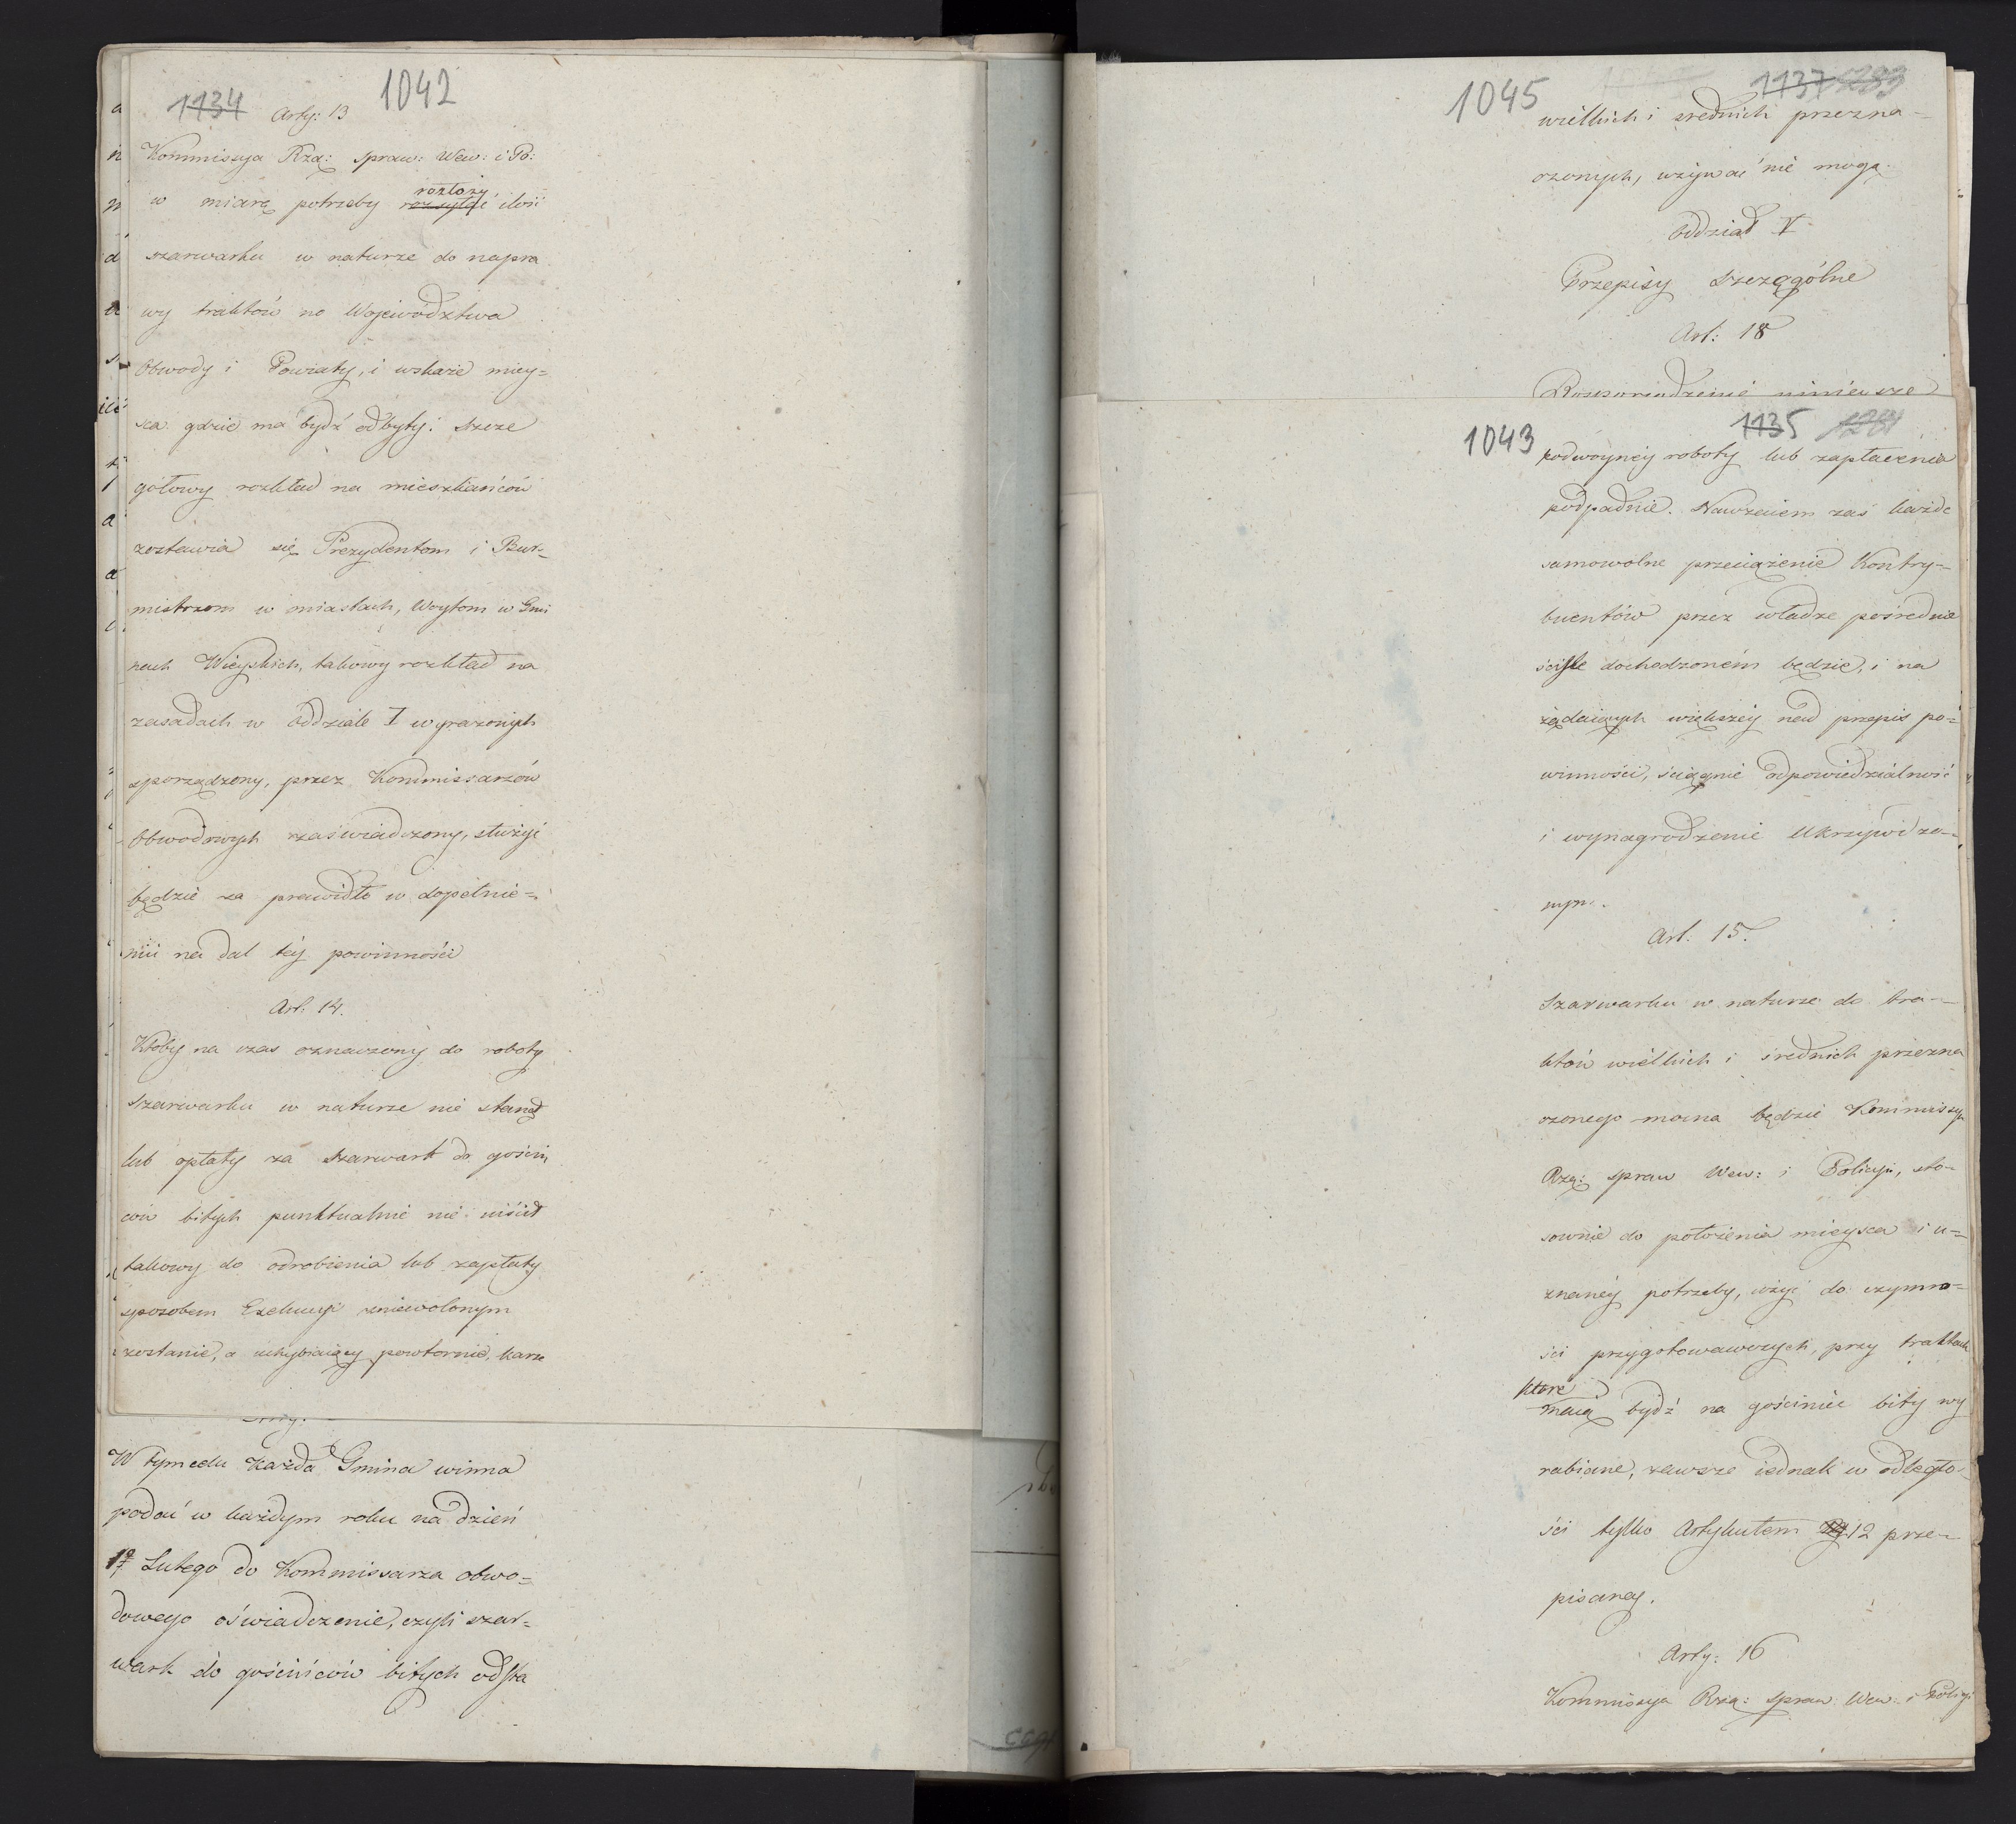 1134 1042
Arty: 13
Kommissya Rzą: spraw: Wew: i Po:
w miarę potrzeby rozsyłać rozłoży ilość
szarwarku w naturze do napra
wy traktów na Województwa
Obwody i Powiaty, i wskaże miey=
sca gdzie ma bydź odbyty. Szcze
gółowy rozkład na mieszkańców
zostawia się Prezydentom i Bur=
mistrzom w miastach, Woytom w Gmi
nach Wieyskich, takowy rozkład na
zasadach w Oddziale I wyrażonych
sporządzony, przez Kommissarzów
Obwodowych zaświadczony, służyć
będzie za prawidło w dopełnie=
niu na dal téy powinności
Art: 14.
Ktoby na czas oznaczony do roboty
szarwarku w naturze nie stanął
lub opłaty za szarwark do gościń
ców bitych punktualnie nie uiścił
takowy do odrobienia lub zapłaty
sposobem Exekucyi zniewolonym
zostanie, a uchybiaiący powtornie, karze
W tym celu każda Gmina winna
podać w każdym roku na dzień
Lutego do Kommissarza obwo=
dowego oświadczenie, czyli szar=
wark do gościńców bitych odsta
1045 1137
wielkich i srednich przezna=
czonych, używać nie mogą
Oddział V
Przepisy Szczególne
Art: 18
Rozporządzenie ninieysze
1043 1135
podwoyney roboty lub zapłacenia
podpadnie. Nawzaiem zaś każde
samowolne przeciążenie Kontry=
buentów przez władze pośrednie
ściśle dochodzoném będzie, i na
żądaiących większéy nad przepis po=
winności, ściągnie odpowiedzialność
i wynagrodzenie Ukrzywdzo=
nym.
Art: 15.
Szarwarku w naturze do tra=
któw wielkich i srednich przezna
czonego można będzie Kommissyi
Rzą: spraw Wew: i Policyi, sto=
sownie do położenia mieysca i u=
znanéy potrzeby, użyć do czynno=
ści przygotowawczych, przy traktach
które
maią bydź na gościniec bity wy
rabiane, zawsze iednak w odległo=
ści tylko Artykułem 12 prze=
pisanej.
Arty: 16
Kommissya Rzą: spraw Wew: i Policyi